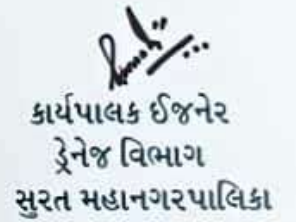 કાર્યપાલક ઈજનેર
ડ્રેનેજ વિભાગ
સુરત મહાનગરપાલિકા